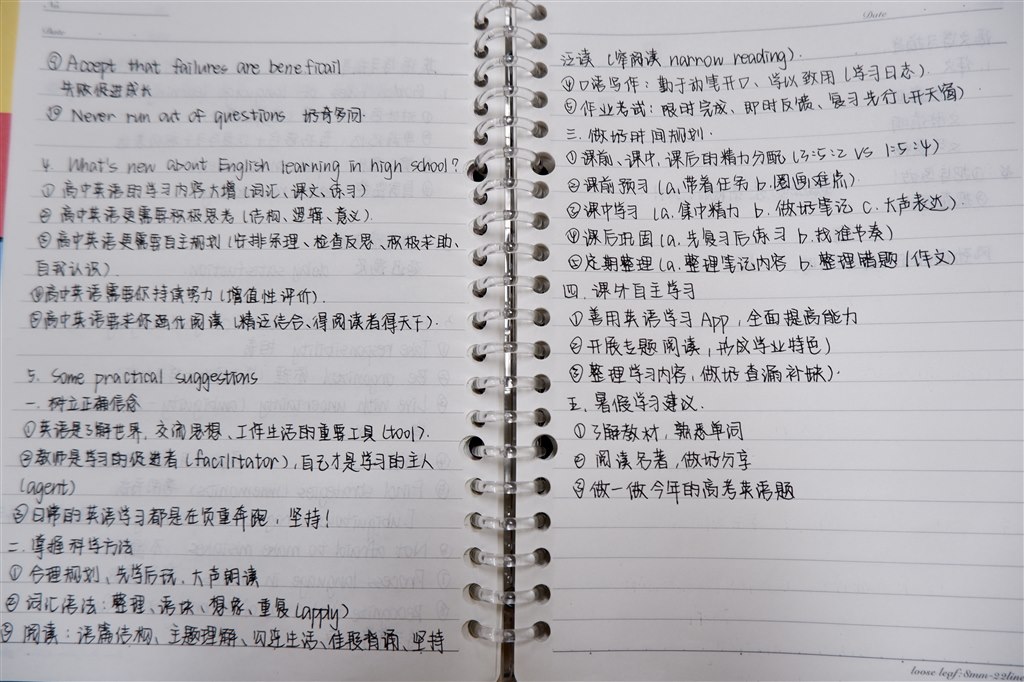 No.
Date
⑨ Accept that failures are beneficail
失败促进成长
⑩ Never run out of questions 好奇多问
4. What's new about English learning in high school?
① 高中英语的学习内容大增(词汇、课文、练习)
② 高中英语更需要积极思考(结构、逻辑、意义)
③ 高中英语更需要自主规划(安排条理、检查反思、积极求助、
自我认识).
④高中英语需要你持续努力(增值性评价).
⑤高中英语要求你进行阅读(精泛结合、得阅读者得天下).
5. Some practical suggestions
一. 树立正确信念
①英语是了解世界, 交流思想、工作生活的重要工具(tool).
②教师是学习的促进者(facilitator), 自己才是学习的主人
(agent)
③日常的英语学习都是在负重奔跑, 坚持!
二. 掌握科学方法
① 合理规划、先学后玩、大声朗读
② 词汇语法: 整理、语块、想象、重复(apply)
③ 阅读: 语篇结构、主题理解、勾连生活、佳段背诵、坚持
Date
泛读(窄阅读 narrow reading).
④口语写作: 勤于动笔开口、学以致用(学习日志).
⑤作业考试: 限时完成、即时反馈、复习先行(开天窗)
三. 做好时间规划.
①课前、课中、课后的精力分配(3:5:2 VS 1:5:4)
②课前预习(a. 带着任务 b. 圈画难点)
③课中学习(a. 集中精力 b. 做好笔记 c. 大声表达).
④课后巩固(a. 先复习后练习 b. 找准节奏)
⑤定期整理(a. 整理笔记内容 b. 整理错题/作文)
四. 课外自主学习
①善用英语学习App, 全面提高能力
②开展专题阅读, 形成学业特色)
③整理学习内容, 做好查漏补缺).
五. 暑假学习建议.
①了解教材, 熟悉单词
② 阅读名著, 做好分享
③做一做今年的高考英语题
loose leaf:8mm-22line